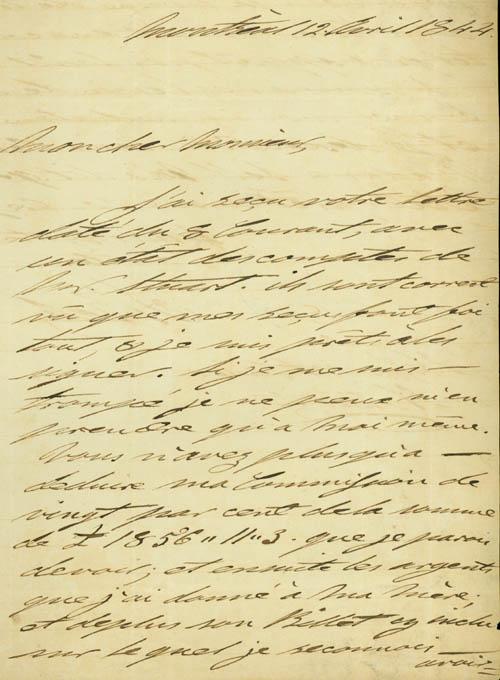 Montréal 12 Avril 1844.
Mon cher Monsieur,
J'ai reçu votre lettre
daté du 8 Courant, avec
un état des comptes de
Mr. Stuart. ils sont correct
vû que mes reçu font foi
tout & je suis prêt à les
signer. Si je me suis —
trompé je ne peux m'en
prendre qu'à moi même.
Vous n'avez plus qu'a —
déduire ma Commission de
vingt par cent de la somme
de £ 1856 " 11 " 3. que je parois
devoir, et ensuite les argents
que j'ai donné à ma Mère,
et deplus son Billet cy inclu
sur lequel je reconnois
avoir=